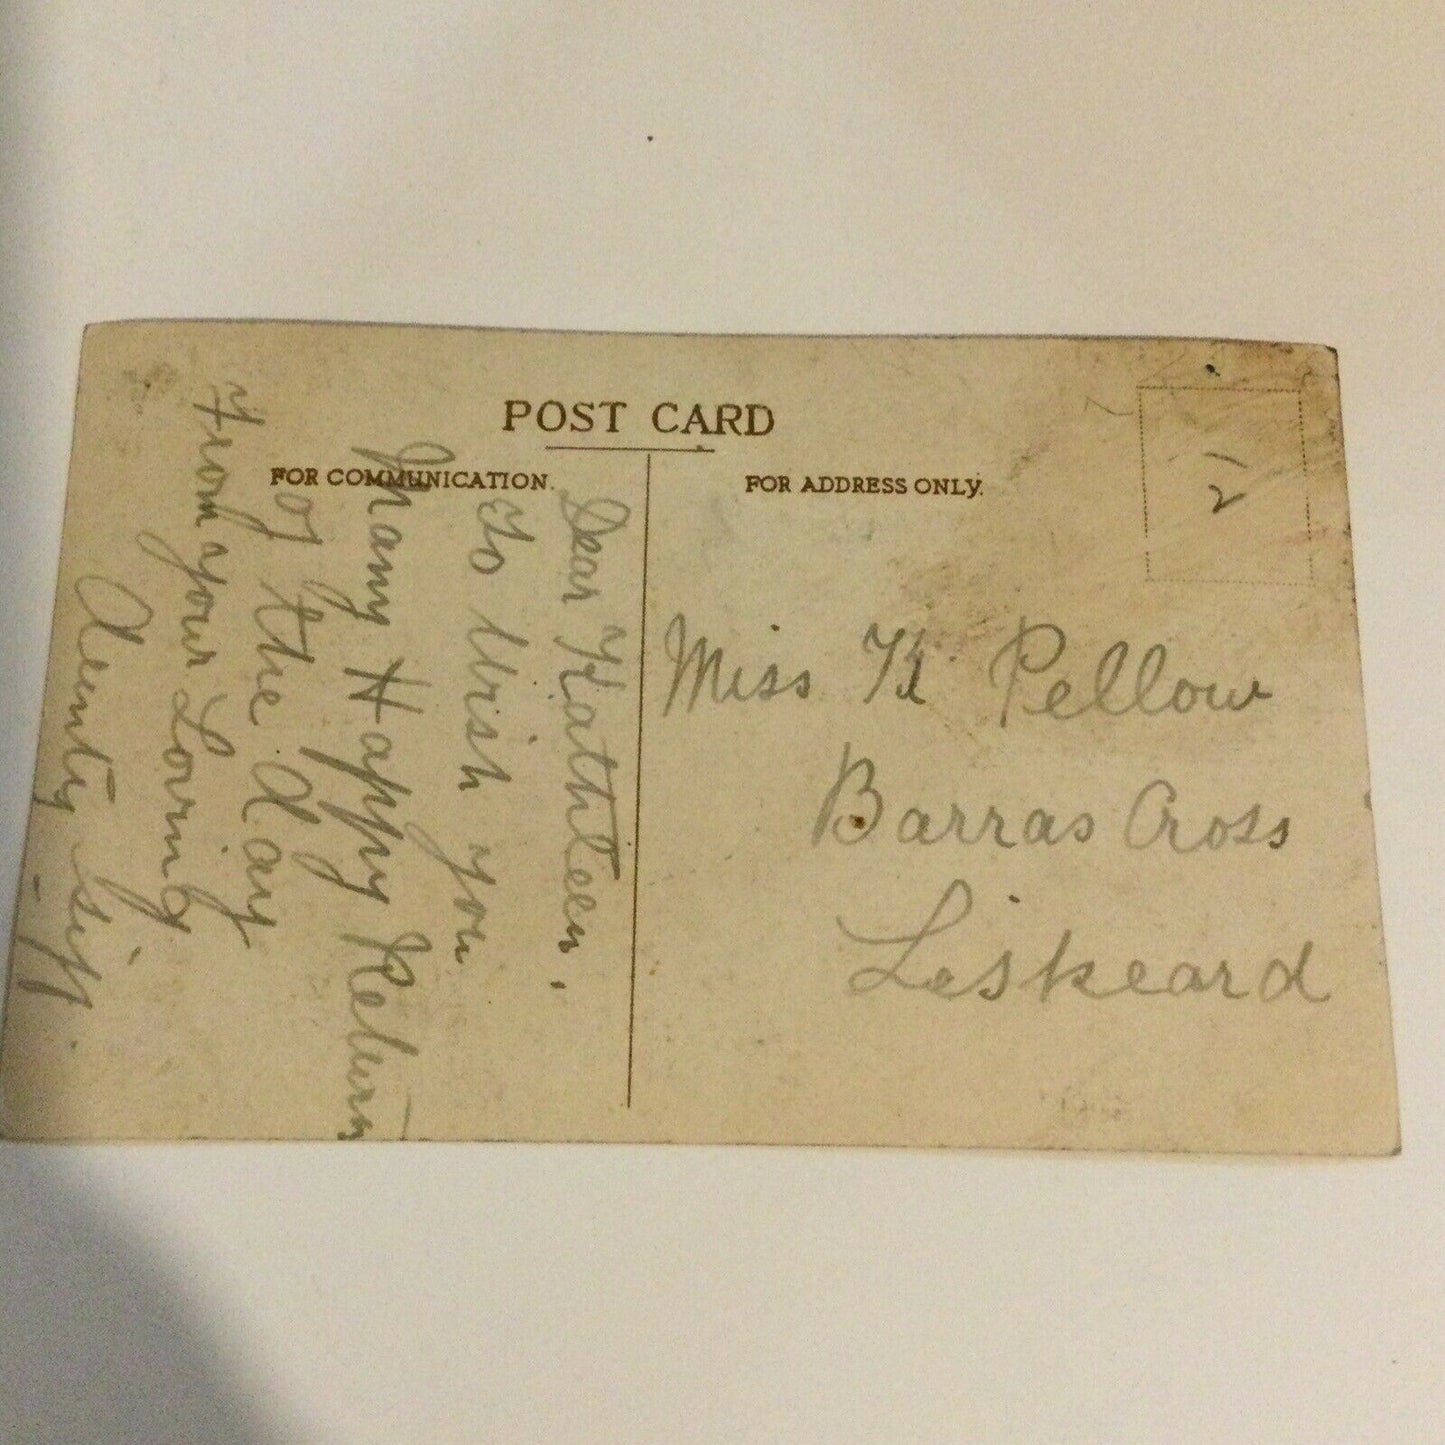 POST CARD
FOR COMMUNICATION.
FOR ADDRESS ONLY.
Dear Kathleen.
To Wish you
Many Happy Return
of the day
From your Loving
Aunty
Miss K Pellow
Barras Cross
Liskeard